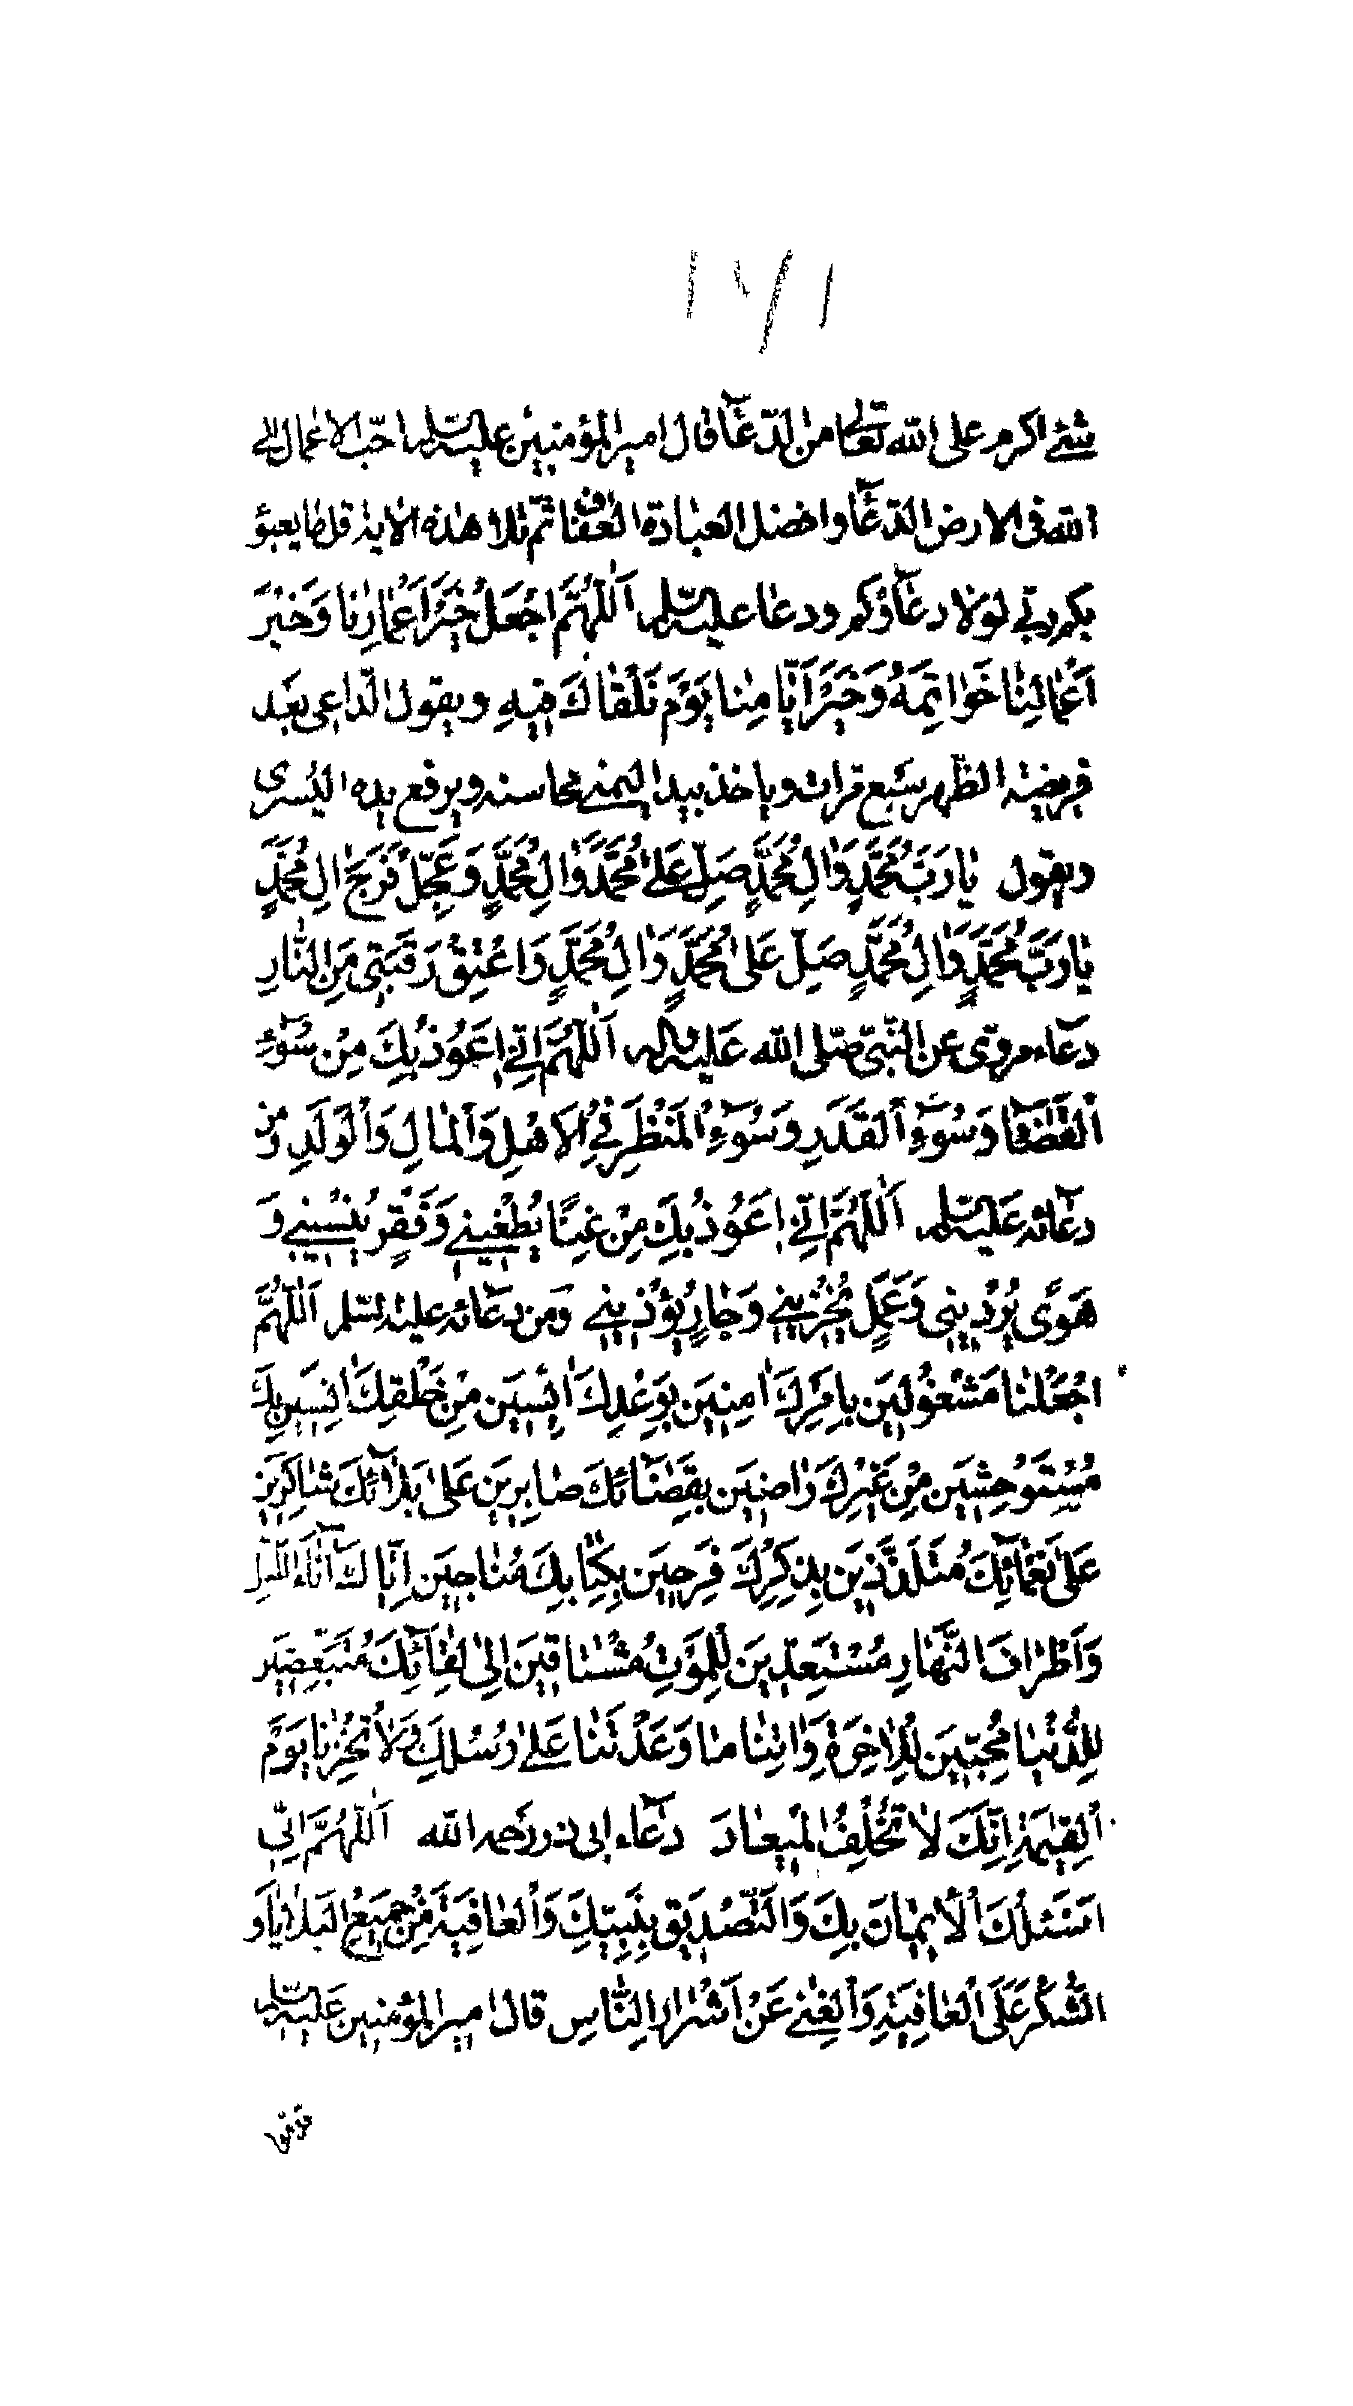 ١٧١
شئ اكرم على الله تعالى من الدّعآء قال امير المؤمنين عليه السّلم احبّ الاعمال الى
الله فى الارض الدّعآء وافضل العبادة العفاف ثمّ تلا هذه الاية قل ما يعبؤ
بكم ربّى لولا دعآؤكم ودعا عليه السّلم اَللّٰهُمَّ اجْعَلْ خَيْرَ اَعْمَارِنَا وَخَيْرَ
اَعْمَالِنَا خَوَاتِمَهُ وَخَيْرَ اَيَّامِنَا يَوْمَ نَلْقَاكَ فِيهِ ويقول الدّاعى بعد
فريضة الظّهر سبع مرات وياخذ بيده اليمنى محاسنه ويرفع يده اليسرى
ويقول يَا رَبَّ مُحَمَّدٍ وَاٰلِ مُحَمَّدٍ صَلِّ عَلىٰ مُحَمَّدٍ وَاٰلِ مُحَمَّدٍ وَعَجِّلْ فَرَجَ اٰلِ مُحَمَّدٍ
يَا رَبَّ مُحَمَّدٍ وَاٰلِ مُحَمَّدٍ صَلِّ عَلىٰ مُحَمَّدٍ وَاٰلِ مُحَمَّدٍ وَاعْتِقْ رَقَبَتِى مِنَ النَّارِ
دعآء مروىّ عن النّبىّ صلّى الله عليه واله اَللّٰهُمَّ اِنّى اَعُوذُ بِكَ مِنْ سُوٓءِ
الْقَضَآءِ وَسُوٓءِ الْقَدَرِ وَسُوٓءِ الْمَنْظَرِ فِى الْاَهْلِ وَالْمَالِ وَالْوَلَدِ ومن
دعائه عَليه السّلم اَللّٰهُمَّ اِنّى اَعُوذُ بِكَ مِنْ غِنًا يُطْغِينِى وَفَقْرٍ يُنْسِينِى وَ
هَوًى يُرْدِينِى وَعَمَلٍ يُخْزِينِى وَجَارٍ يُؤْذِينِى ومن دعائه عليه السّلم اَللّٰهُمَّ
اجْعَلْنَا مَشْغُولِينَ بِاَمْرِكَ اٰمِنِينَ بِوَعْدِكَ اٰئِسِينَ مِنْ خَلْقِكَ اٰنِسِينَ بِكَ
مُسْتَوْحِشِينَ مِنْ غَيْرِكَ رَاضِينَ بِقَضَآئِكَ صَابِرِينَ عَلىٰ بَلَآئِكَ شَاكِرِينَ
عَلىٰ نَعْمَآئِكَ مُتَلَذِّذِينَ بِذِكْرِكَ فَرِحِينَ بِكِتَابِكَ مُنَاجِينَ اِيَّاكَ اٰنَآءَ اللَّيْلِ
وَاَطْرَافَ النَّهَارِ مُسْتَعِدِّينَ لِلْمَوْتِ مُشْتَاقِينَ اِلىٰ لِقَآئِكَ مُتَبَغِّضِينَ
لِلدُّنْيَا مُحِبِّينَ لِلْاٰخِرَةِ وَاٰتِنَا مَا وَعَدْتَنَا عَلىٰ رُسُلِكَ وَلَا تُخْزِنَا يَوْمَ
الْقِيٰمَةِ اِنَّكَ لَا تُخْلِفُ الْمِيعَادَ دعآء ابى ذر رحمه الله اَللّٰهُمَّ اِنّى
اَسْئَلُكَ الْاِيمَانَ بِكَ وَالتَّصْدِيقَ بِنَبِيِّكَ وَالْعَافِيَةَ مِنْ جَمِيعِ الْبَلَايَا وَ
الشُّكْرَ عَلَى الْعَافِيَةِ وَالْغِنىٰ عَنْ اَشْرَارِ النَّاسِ قال امير المؤمنين عَليه السّلم